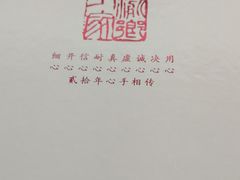 细开信耐真虚诚决用
心心心心心心心心心
貳拾年心手相传